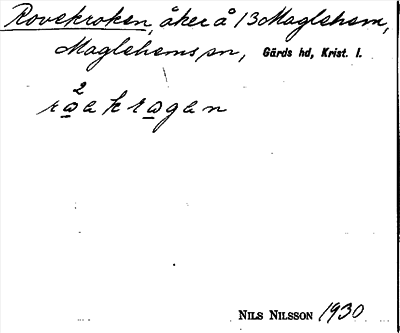 Rovekroken, åker å 13 Maglehem,
Maglehems sn, Gärds hd, Krist. l.
2
rɷekrɷgen
NILS NILSSON 1930